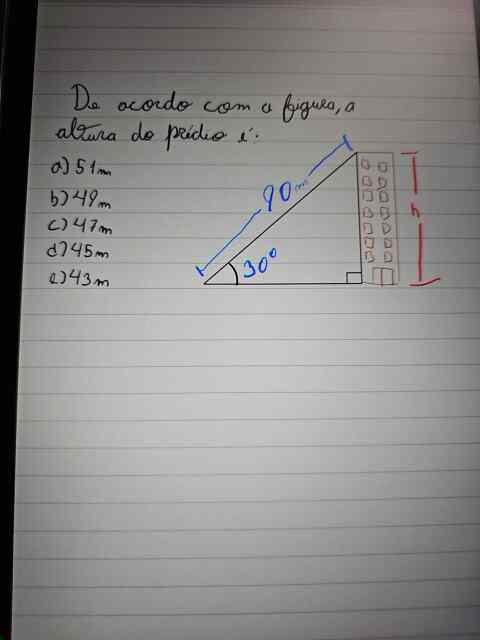 De acordo com a figura, a
altura do prédio é:
a) 51m
b) 49m
c) 47m
d) 45m
e) 43m
90m
30°
h